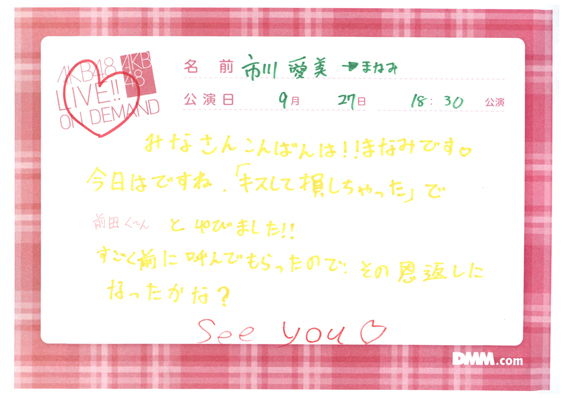 AKB48
LIVE!!
ON DEMAND
AKB
48
名 前 市川 愛美 →まなみ
公演日 9月 27日 18:30 公演
みなさんこんばんは!!まなみです♡
今日はですね、「キスして損しちゃった」で
前田くん と ゆびました!!
すごく前に呼んでもらったので、その恩返しに
なったかな?
See you♡
DMM.com